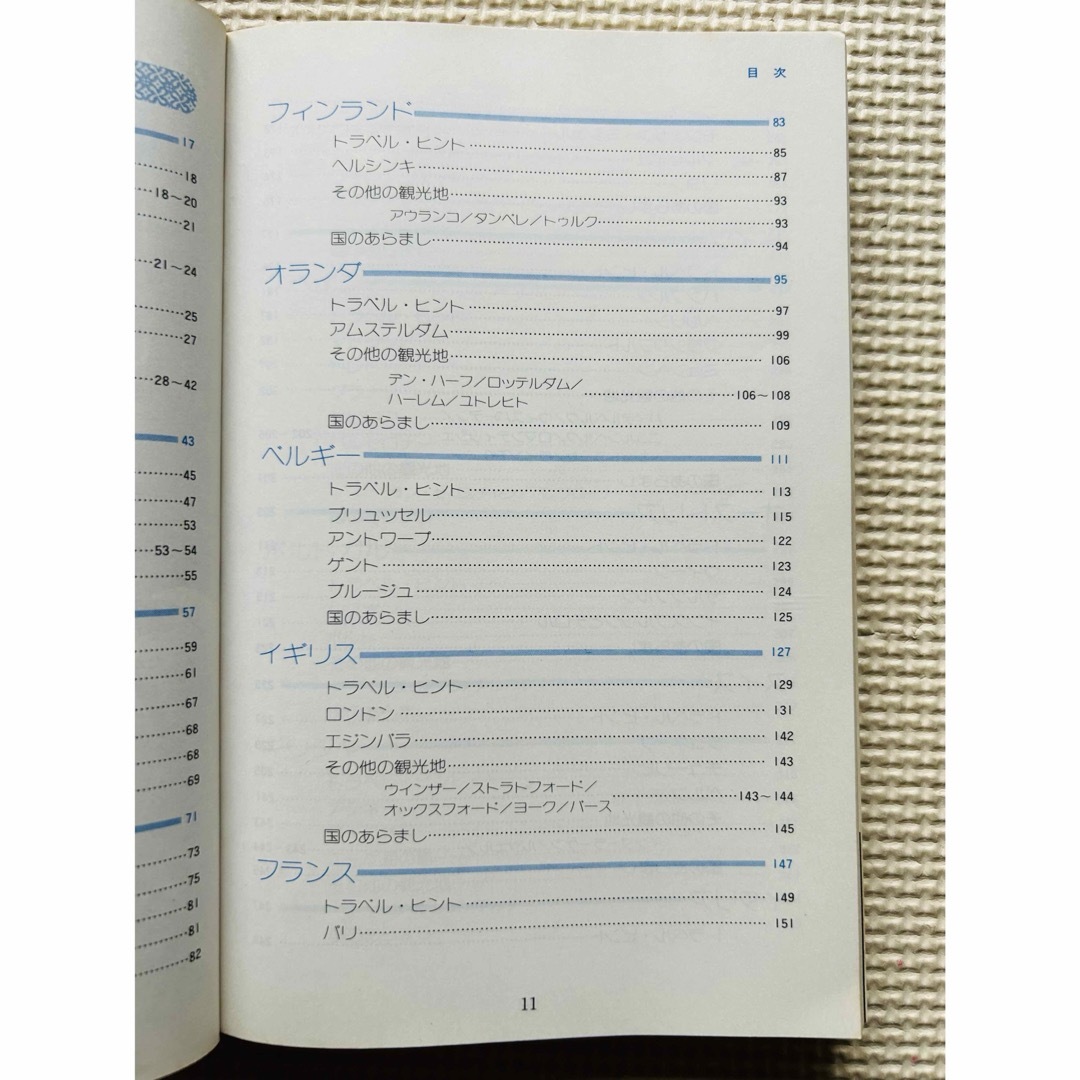 17
18
18〜20
21
21〜24
25
27
28〜42
43
45
47
53
53〜54
55
57
59
61
67
68
68
69
71
73
75
81
81
82
目次
フィンランド 83
トラベル・ヒント 85
ヘルシンキ 87
その他の観光地 93
アウランコ/タンペレ/トゥルク 93
国のあらまし 94
オランダ 95
トラベル・ヒント 97
アムステルダム 99
その他の観光地 106
デン・ハーフ/ロッテルダム/
ハーレム/ユトレヒト 106〜108
国のあらまし 109
ベルギー 111
トラベル・ヒント 113
ブリュッセル 115
アントワープ 122
ゲント 123
ブルージュ 124
国のあらまし 125
イギリス 127
トラベル・ヒント 129
ロンドン 131
エジンバラ 142
その他の観光地 143
ウインザー/ストラトフォード/
オックスフォード/ヨーク/バース 143〜144
国のあらまし 145
フランス 147
トラベル・ヒント 149
パリ 151
11